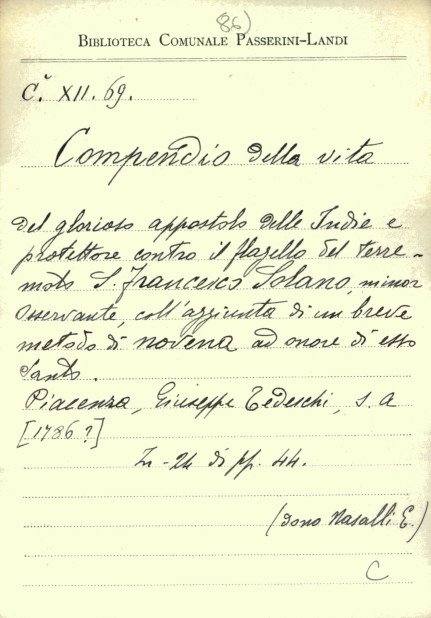 86)
BIBLIOTECA COMUNALE PASSERINI-LANDI
C. XII. 69.
Compendio della vita
del glorioso appostolo delle Indie e
protettore contro il flagello del terre-
moto S. Francesco Solano, minor
osservante, coll'aggiunta di un breve
metodo di novena ad onore di esso
Santo.
Piacenza, Giuseppe Tedeschi, s. a
[1786?]
In-24 di pp. 44.
(dono Nasalli E.)
C